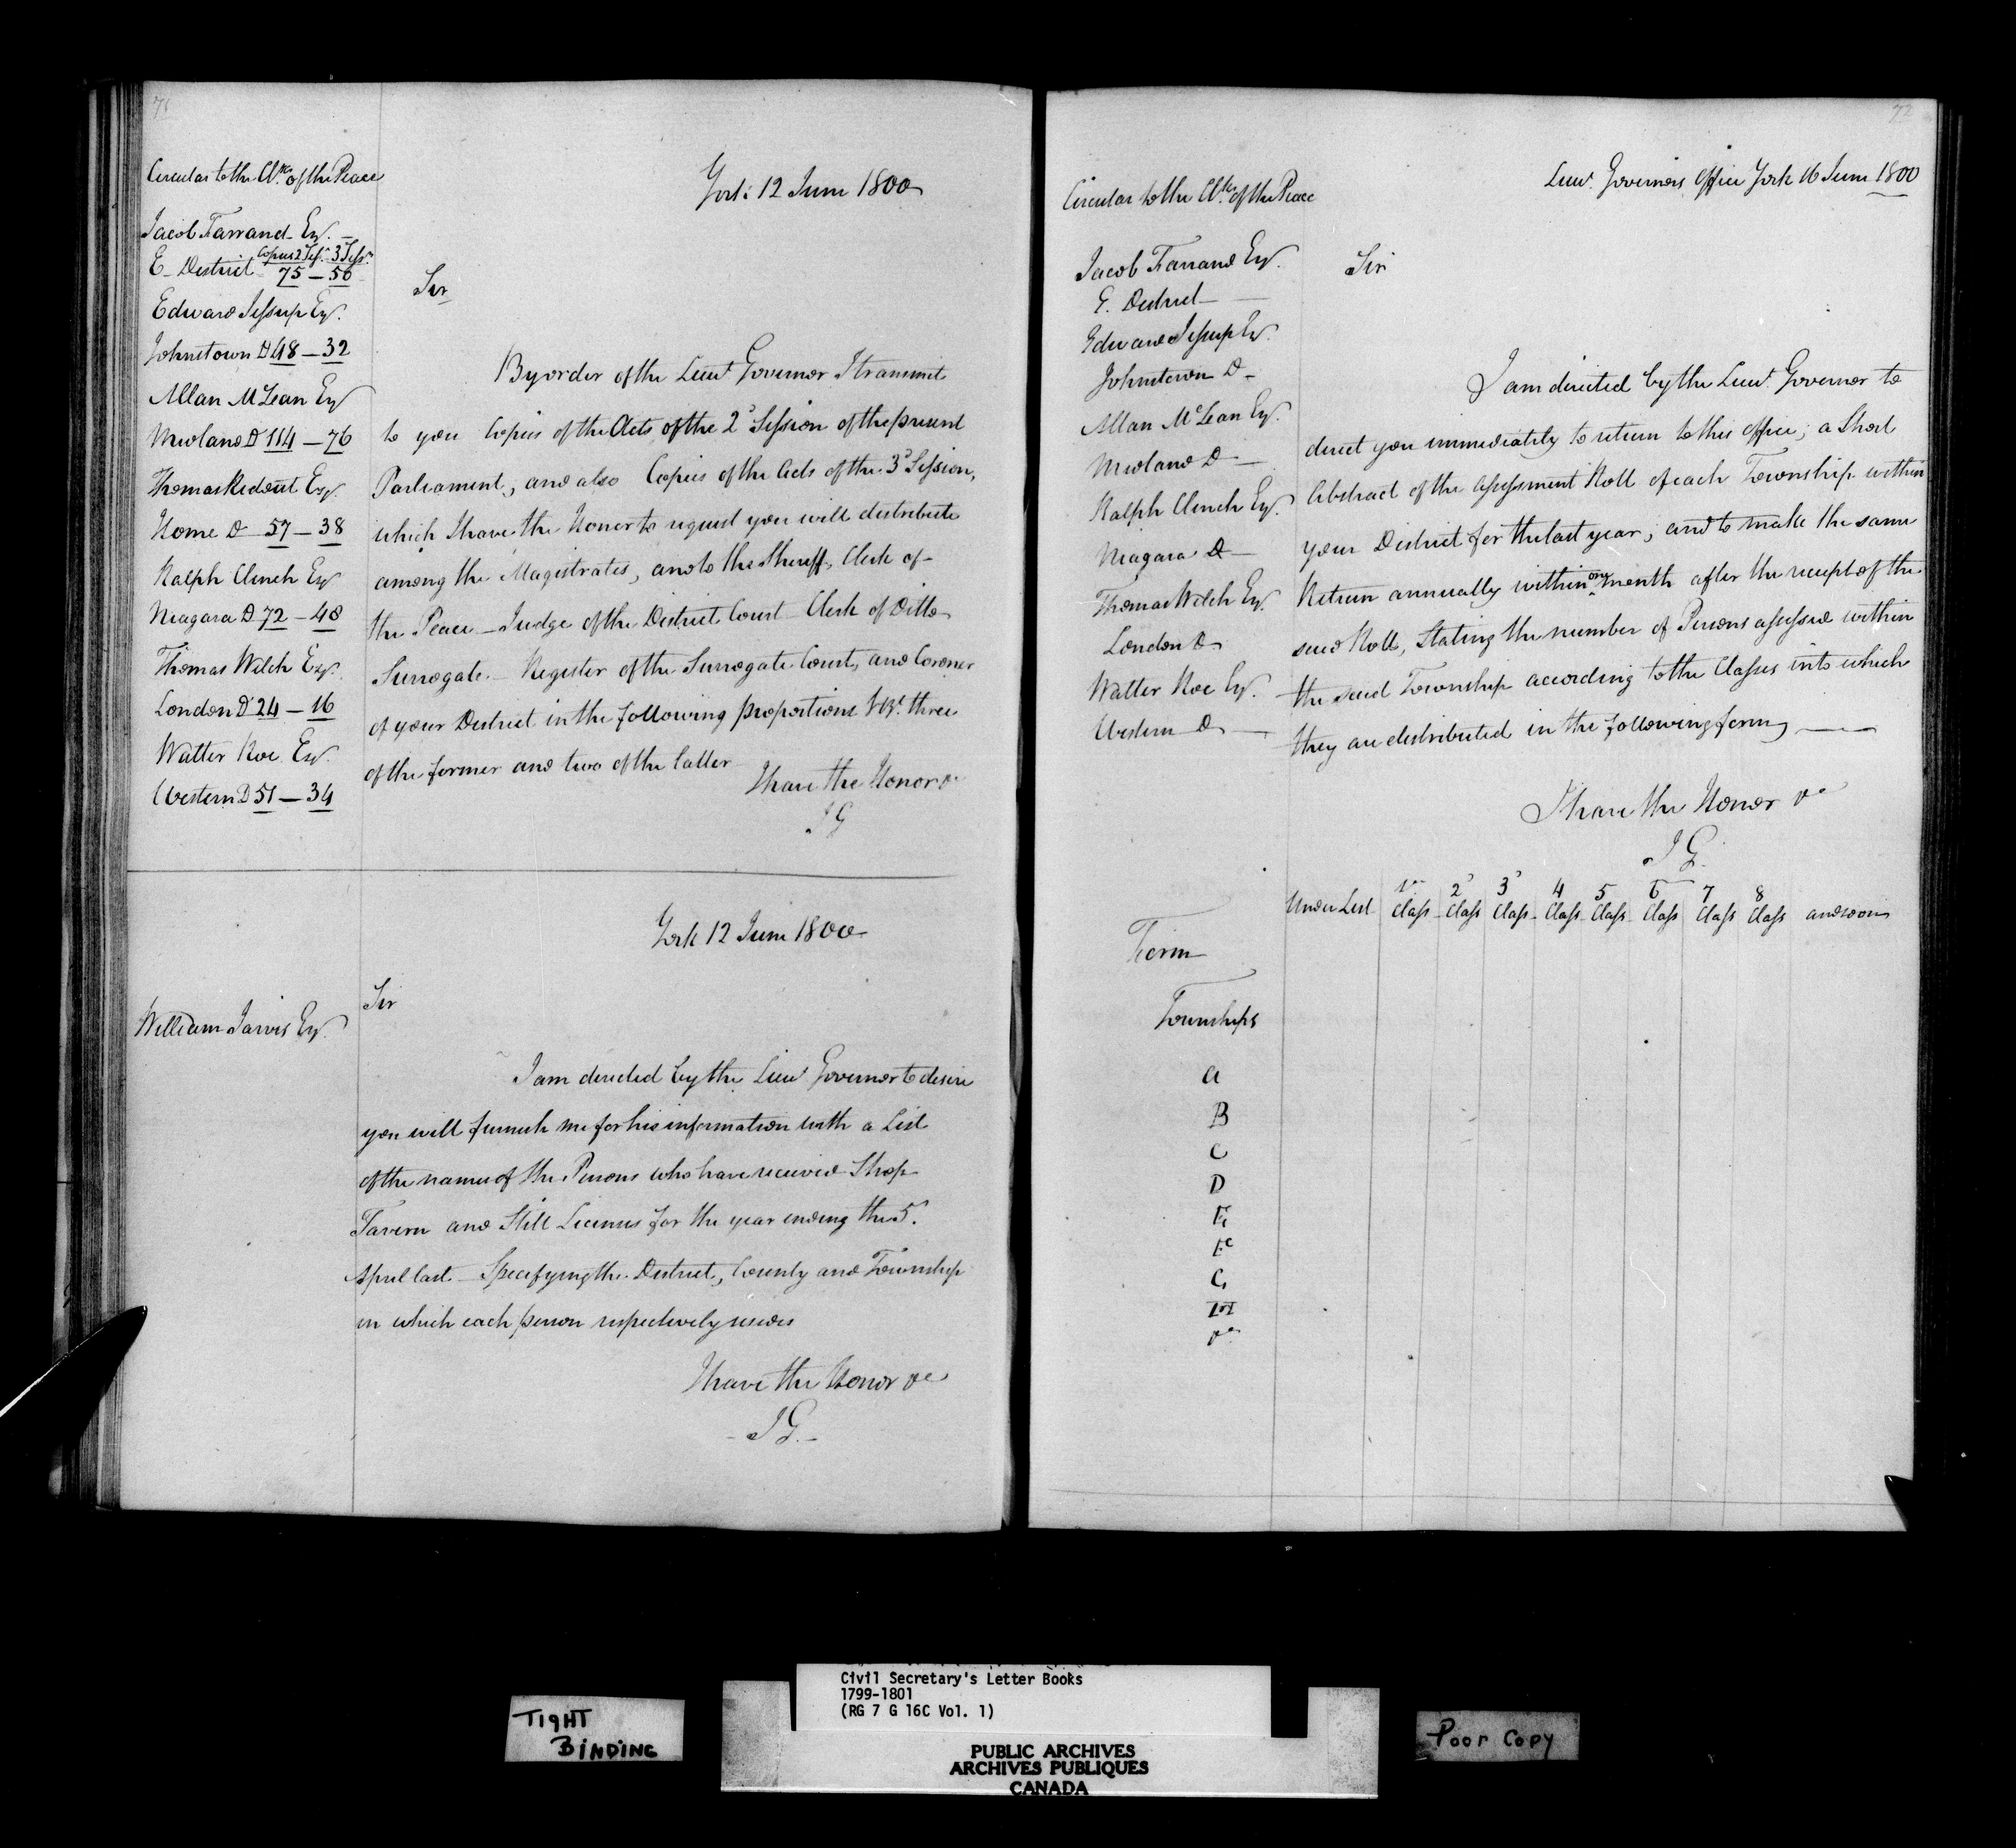 71
Circular to the Clks of the Peace
Jacob Farrand Esqr. —
Copies 2 Sess. 3 Sessn.
E. District 75 — 50
Edward Jessup Esqr.
Johnstown D 48 — 32
Allan McLean Esqr
Midland D 114 — 76
Thomas Ridout Esqr.
Home D 57 — 38
Ralph Clench Esqr
Niagara D 72 — 48
Thomas Welch Esqr.
London D 24 — 16
Walter Roe Esqr.
Western D 51 — 34
York 12 June 1800
Sir
By order of the Lieut Governor I transmit
to you Copies of the Acts of the 2d Session of the present
Parliament, and also Copies of the Acts of the 3d Session,
which I have the Honor to request you will distribute
among the Magistrates, and to the Sheriff, Clerk of
the Peace — Judge of the District Court — Clerk of Ditto
Surrogate — Register of the Surrogate Court, and Coroner
of your District in the following proportions Vizt. three
of the former and two of the latter
I have the Honor &c
J G
York 12 June 1800
William Jarvis Esqr.
Sir
I am directed by the Lieut Governor to desire
you will furnish me for his information with a List
of the names of the Persons who have received Shop
Tavern and Still Licenses for the year ending the 5.
April last — Specifying the District, County and Township
in which each person respectively resides
I have the Honor &c
J G.
72
Circular to the Clks of the Peace
Jacob Farrand Esqr.
E. District —
Edward Jessup Esqr.
Johnstown D —
Allan McLean Esqr.
Midland D —
Ralph Clench Esqr.
Niagara D —
Thomas Welch Esqr.
London D —
Walter Roe Esqr.
Western D —
Lieut. Governors Office York 16 June 1800
Sir
I am directed by the Lieut. Governor to
direct you immediately to return to this office, a Short
Abstract of the Assessment Roll of each Township within
your District for the last year, and to make the same
Return annually within one month after the receipt of the
said Roll, Stating the number of Persons assessed within
the said Township according to the Classes into which
they are distributed in the following form —
I have the Honor &c
J G.
Under List 1st Class 2d Class 3d Class 4 Class 5 Class 6 Class 7 Class 8 Class and so on
Form
Townships
A
B
C
D
E
F
G
H
&c
TIGHT
BINDING
Civil Secretary's Letter Books
1799-1801
(RG 7 G 16C Vol. 1)
PUBLIC ARCHIVES
ARCHIVES PUBLIQUES
CANADA
Poor Copy